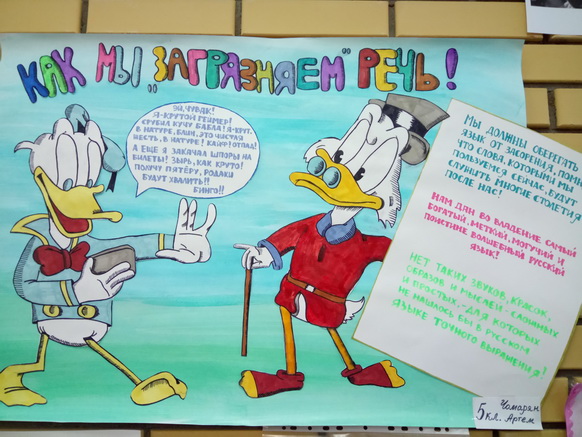 КАК МЫ "ЗАГРЯЗНЯЕМ" РЕЧЬ!
ЭЙ, ЧУВАК!
Я-КРУТОЙ ГЕЙМЕР!
СРУБИЛ КУЧУ БАБЛА! Я-КРУТ,
В НАТУРЕ, БЛИН, ЭТО ЧИСТАЯ
ЖЕСТЬ, В НАТУРЕ! КАЙФ! ОТПАД!
А ЕЩЕ Я ЗАКАЧАЛ ШПОРЫ НА
БИЛЕТЫ! ЗЫРЬ, КАК КРУТО!
ПОЛУЧУ ПЯТЁРУ, РОДАКИ
БУДУТ ХВАЛИТЬ!!
БИНГО!!
МЫ ДОЛЖНЫ ОБЕРЕГАТЬ
ЯЗЫК ОТ ЗАСОРЕНИЯ,
ЧТО СЛОВА, КОТОРЫМИ МЫ
ПОЛЬЗУЕМСЯ СЕЙЧАС, БУДУТ
СЛУЖИТЬ МНОГИЕ СТОЛЕТИЯ
ПОСЛЕ НАС!
НАМ ДАН ВО ВЛАДЕНИЕ САМЫЙ
БОГАТЫЙ, МЕТКИЙ, МОГУЧИЙ И
ПОИСТИНЕ ВОЛШЕБНЫЙ РУССКИЙ
ЯЗЫК!
НЕТ ТАКИХ ЗВУКОВ, КРАСОК,
ОБРАЗОВ И МЫСЛЕЙ - СЛОЖНЫХ
И ПРОСТЫХ, - ДЛЯ КОТОРЫХ
НЕ НАШЛОСЬ БЫ В РУССКОМ
ЯЗЫКЕ ТОЧНОГО ВЫРАЖЕНИЯ!
Чомарян
5 кл. Артем